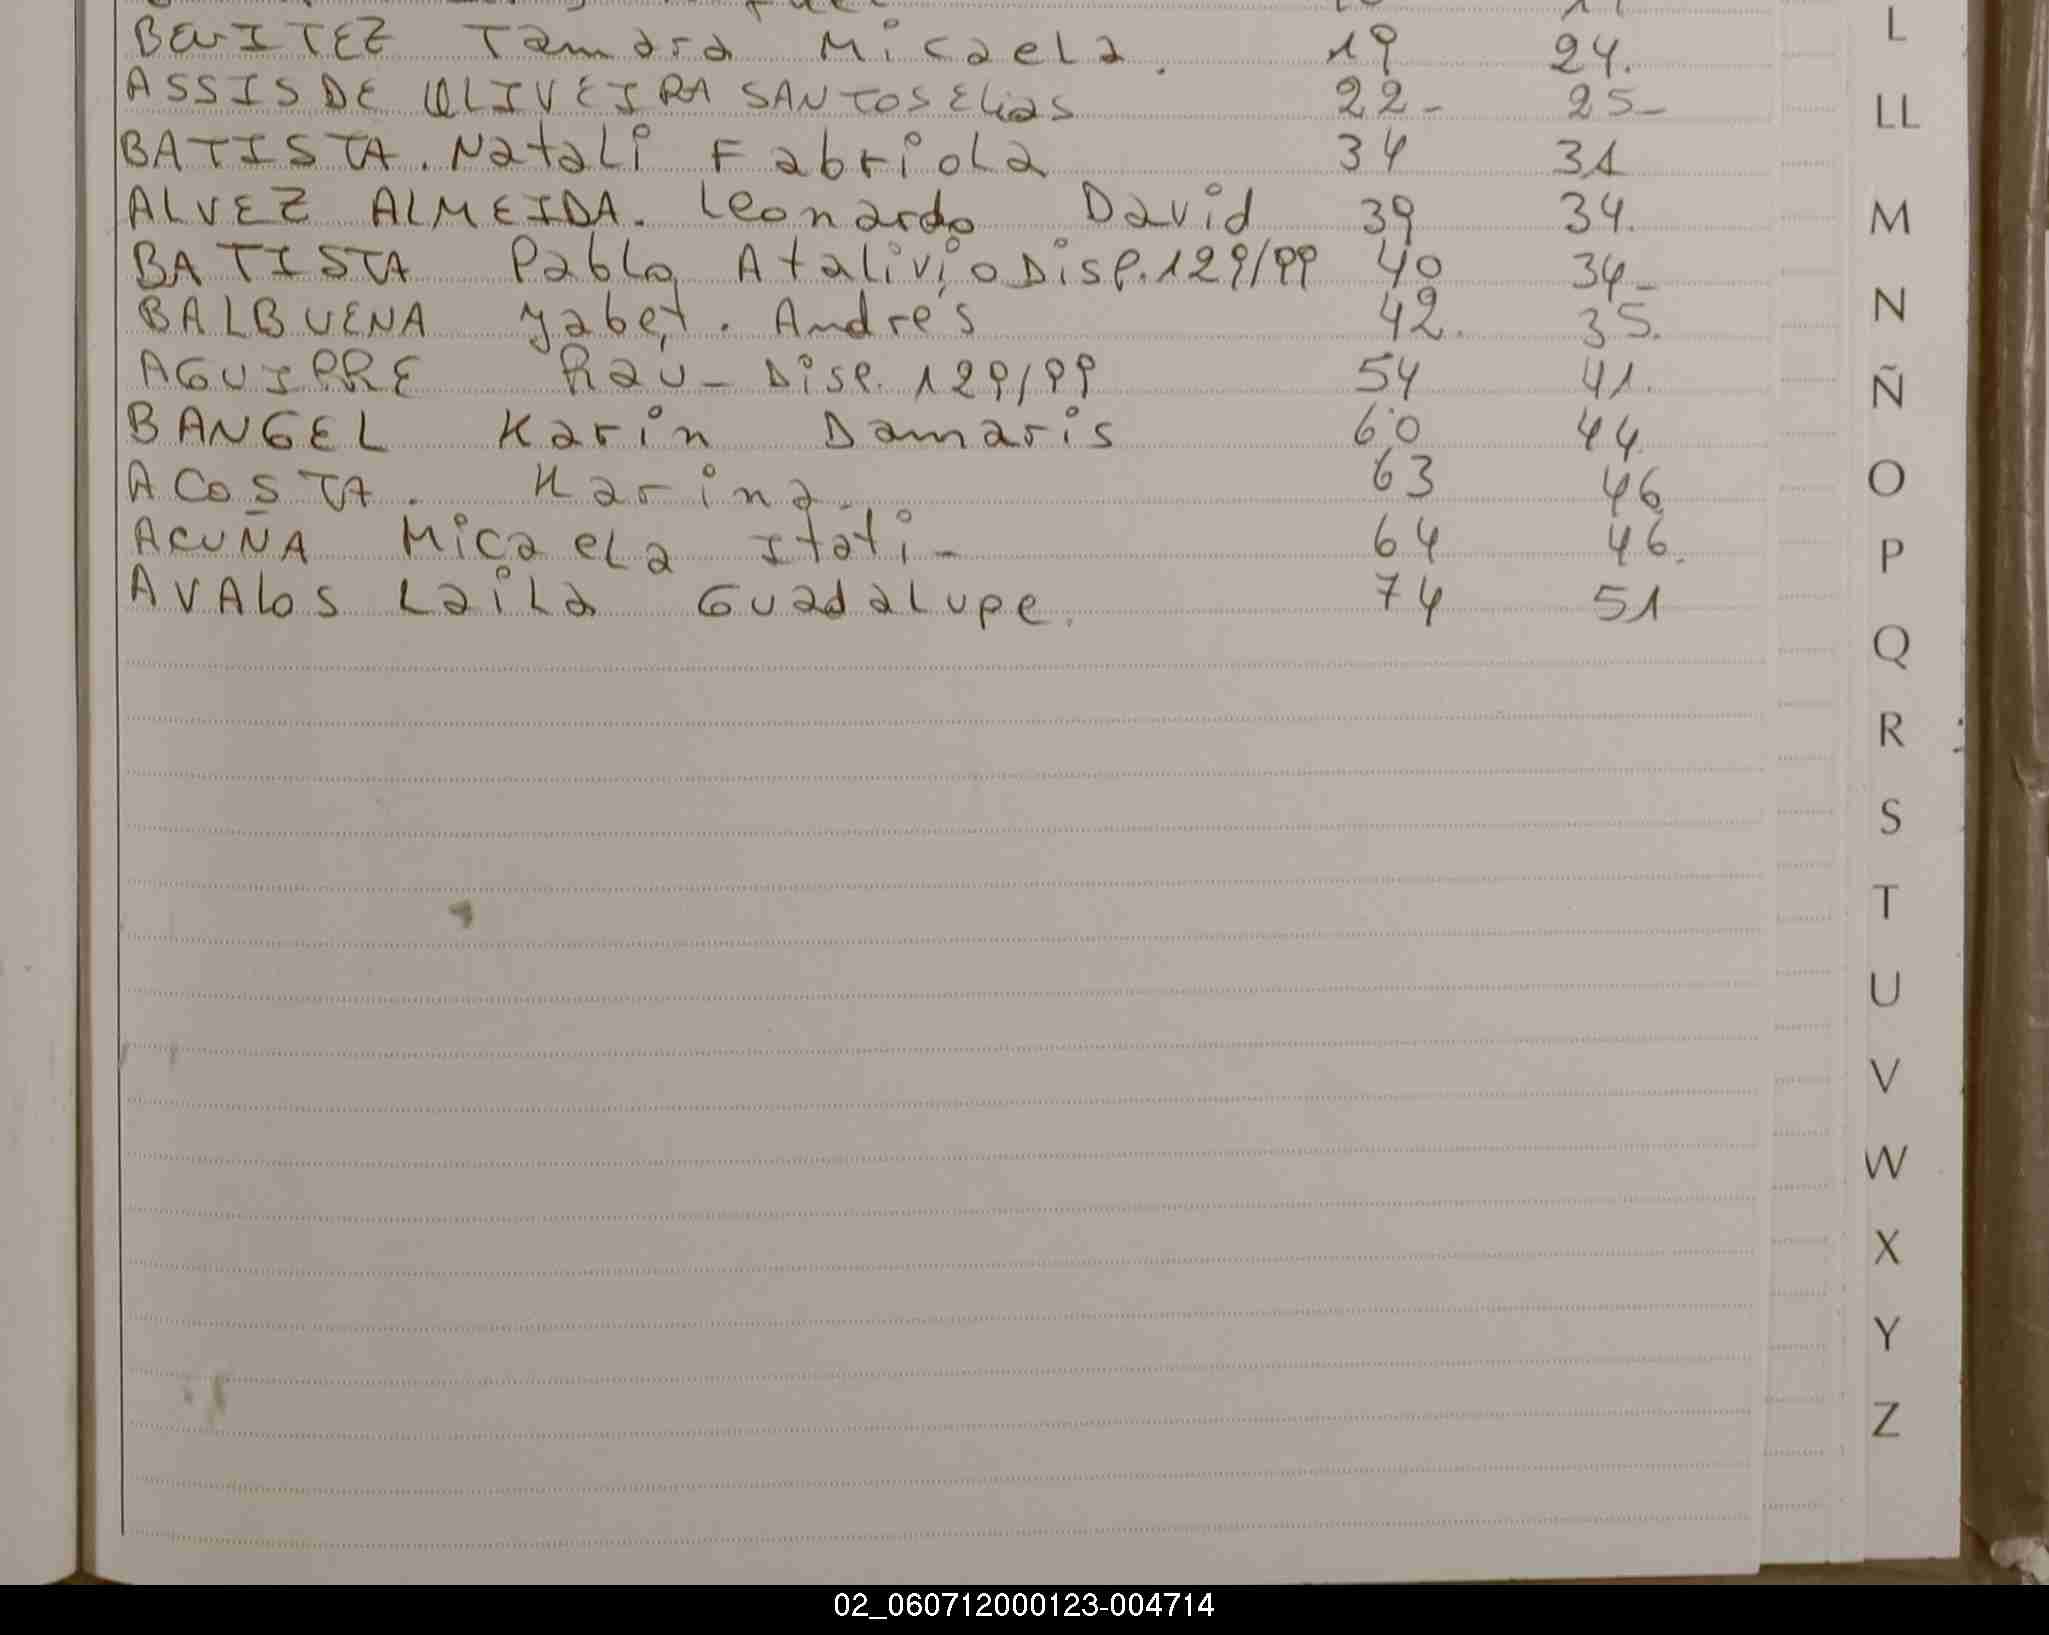 BENITEZ Tamara Micaela. 19 24.
ASSIS DE OLIVEIRA SANTOS Elias 22- 25-
BATISTA. Natali Fabriola 34 31
ALVEZ ALMEIDA. Leonardo David 39 34.
BATISTA Pablo Atalivio Disp. 129/99 40 34-
BALBUENA Yabet. Andrés 42. 35.
AGUIRRE Raú- Disp. 129/99 54 41.
BANGEL Karin Damaris 60 44.
ACOSTA. Karina 63 46
ACUÑA Micaela Itatí- 64 46.
AVALOS Laila Guadalupe. 74 51
L
LL
M
N
Ñ
O
P
Q
R
S
T
U
V
W
X
Y
Z
02_060712000123-004714